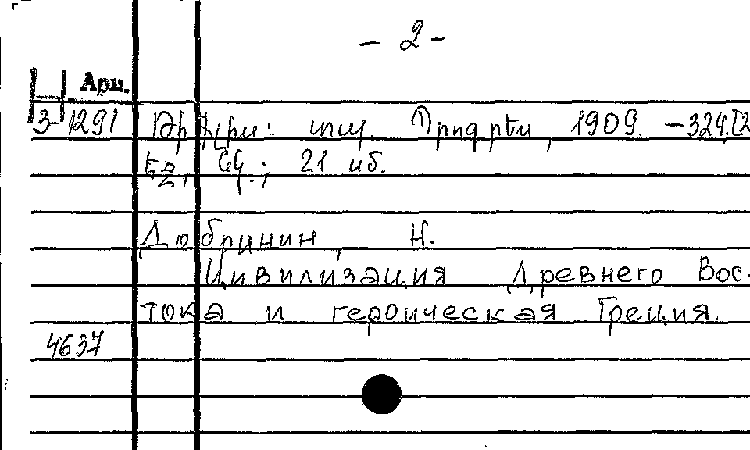 - 2 -
Арм.
3-1291 Թիֆլիս: տպ. Պրոգրես, 1909. -324,[2
էջ, նկ.; 21 սմ.
Дюбринин, Н.
Цивилизация Древнего Вос-
тока и героическая Греция.
4637